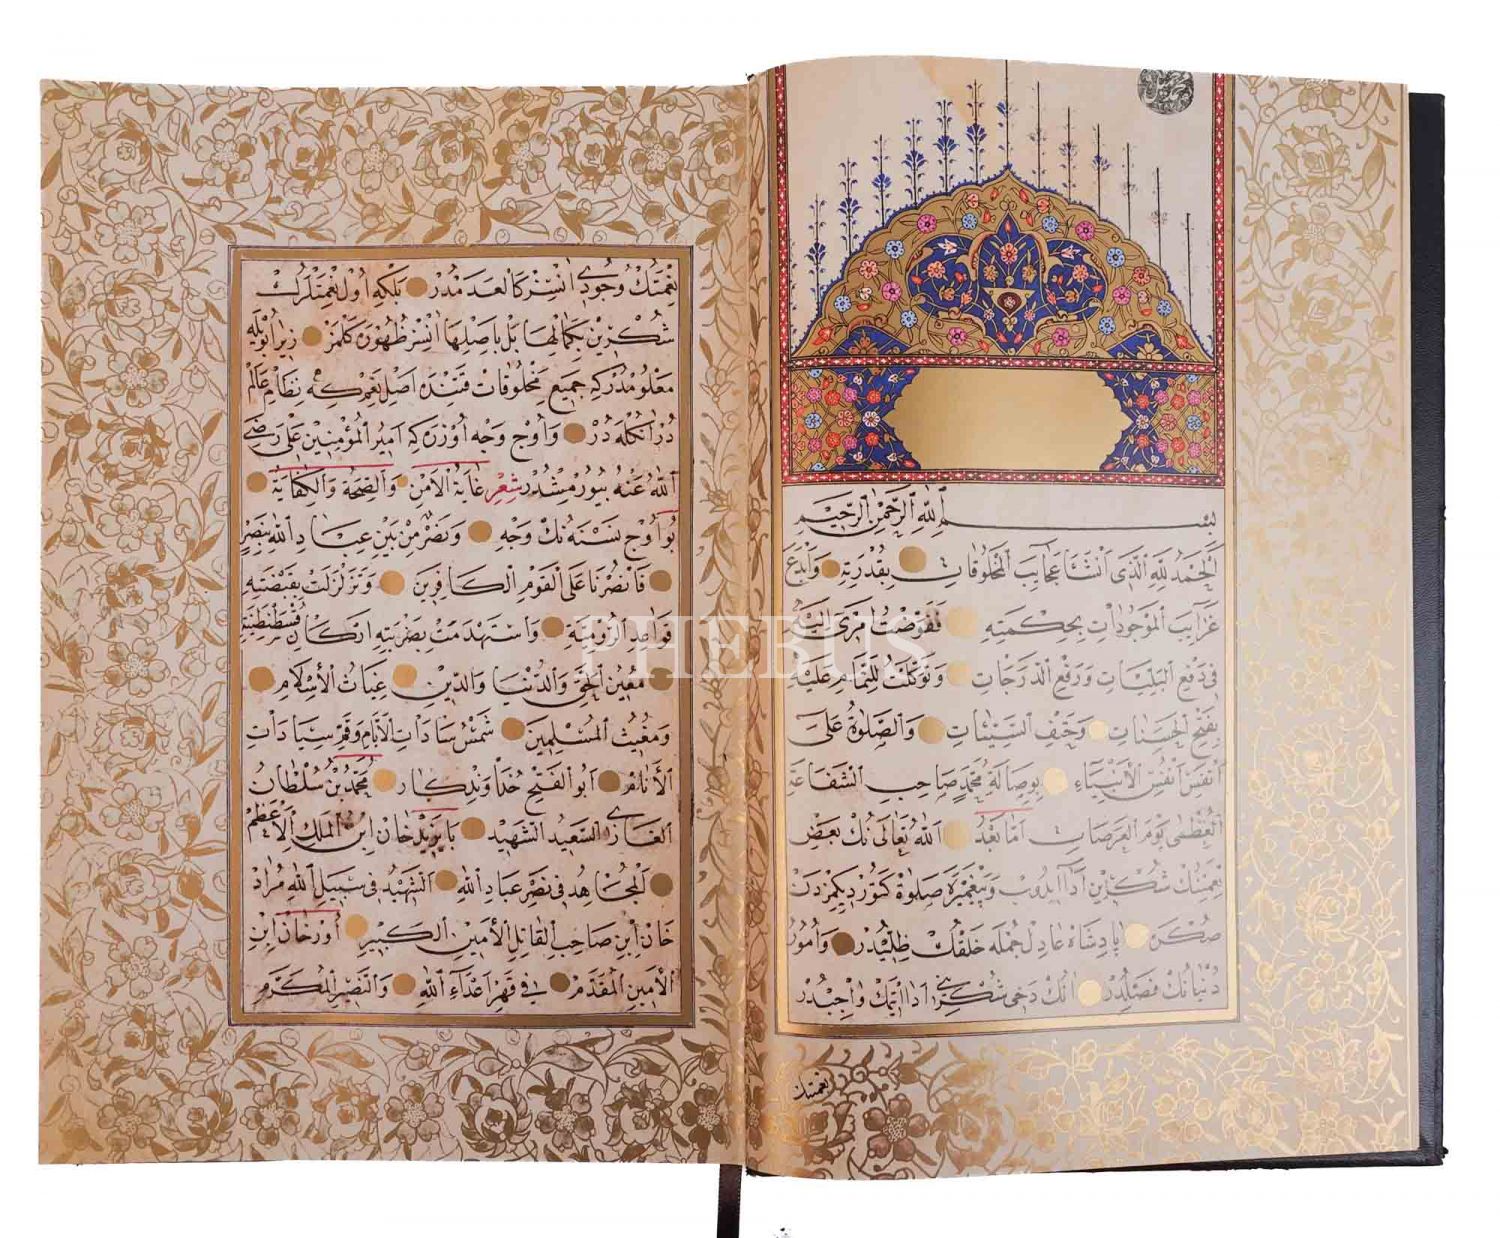 بسم الله الرحمن الرحيم
الحمد لله الذى انشأ عجايب المخلوقات بقدرته وابدع
غرايب الموجودات بحكمته ففوضت امرى اليه
فى دفع البليات ورفع الدرجات وتوكلت للتمام عليه
بفتح الحسنات وخفف السيئات والصلوة على
انفس انفس الأنبياء بوصالة محمد صاحب الشفاعة
العظمى يوم العرصات اما بعد الله تعالى نك بعض
نعمتنك شكرين ادا ايدوب وپيغمبره صلوة كتوردكمزدن
صكره پادشاه عادل جمله خلقك ظليدر وامور
دنيانك فصليدر انك دخى شكرينى ادا اتمك واجبدر
نعمتنك
نعمتنك وجودى انسز كا لعدمدر بلكه اول نعمتلرك
شكرين بكمالها بل باصلها انسز ظهوره كلمز زيرا بويله
معلومدركه جميع مخلوقات قتنده اصل نعم كه نظام عالم
در انكله در واوج وجه اوزره كه امير المؤمنين على رضى
الله عنه بيورمشدر شعر غاية الأمن والصحة والكفاية
بو اوج نسنه نك وجه ونصر من بين عباد الله بنصر
فانصرنا على القوم الكافرين وتزلزلت بقبضته
قواعد الرومية واستهدمت بضربته اركان قسطنطنية
معين الحق والدنيا والدين غياث الأسلام
ومغيث المسلمين شمس سادات الأنام وقمر سيادات
الأنام ابو الفتح خدا وندكار محمد بن سلطان
الغازى السعيد الشهيد بايزيد خان ابن الملك الأعظم
المجاهد فى نصر عباد الله الشهيد فى سبيل الله مراد
خان ابن صاحب القاتل الأمين الكبير اورخان ابن
الأمين المقدم فى قهر اعداء الله والنصر المكرم
PHEBUS